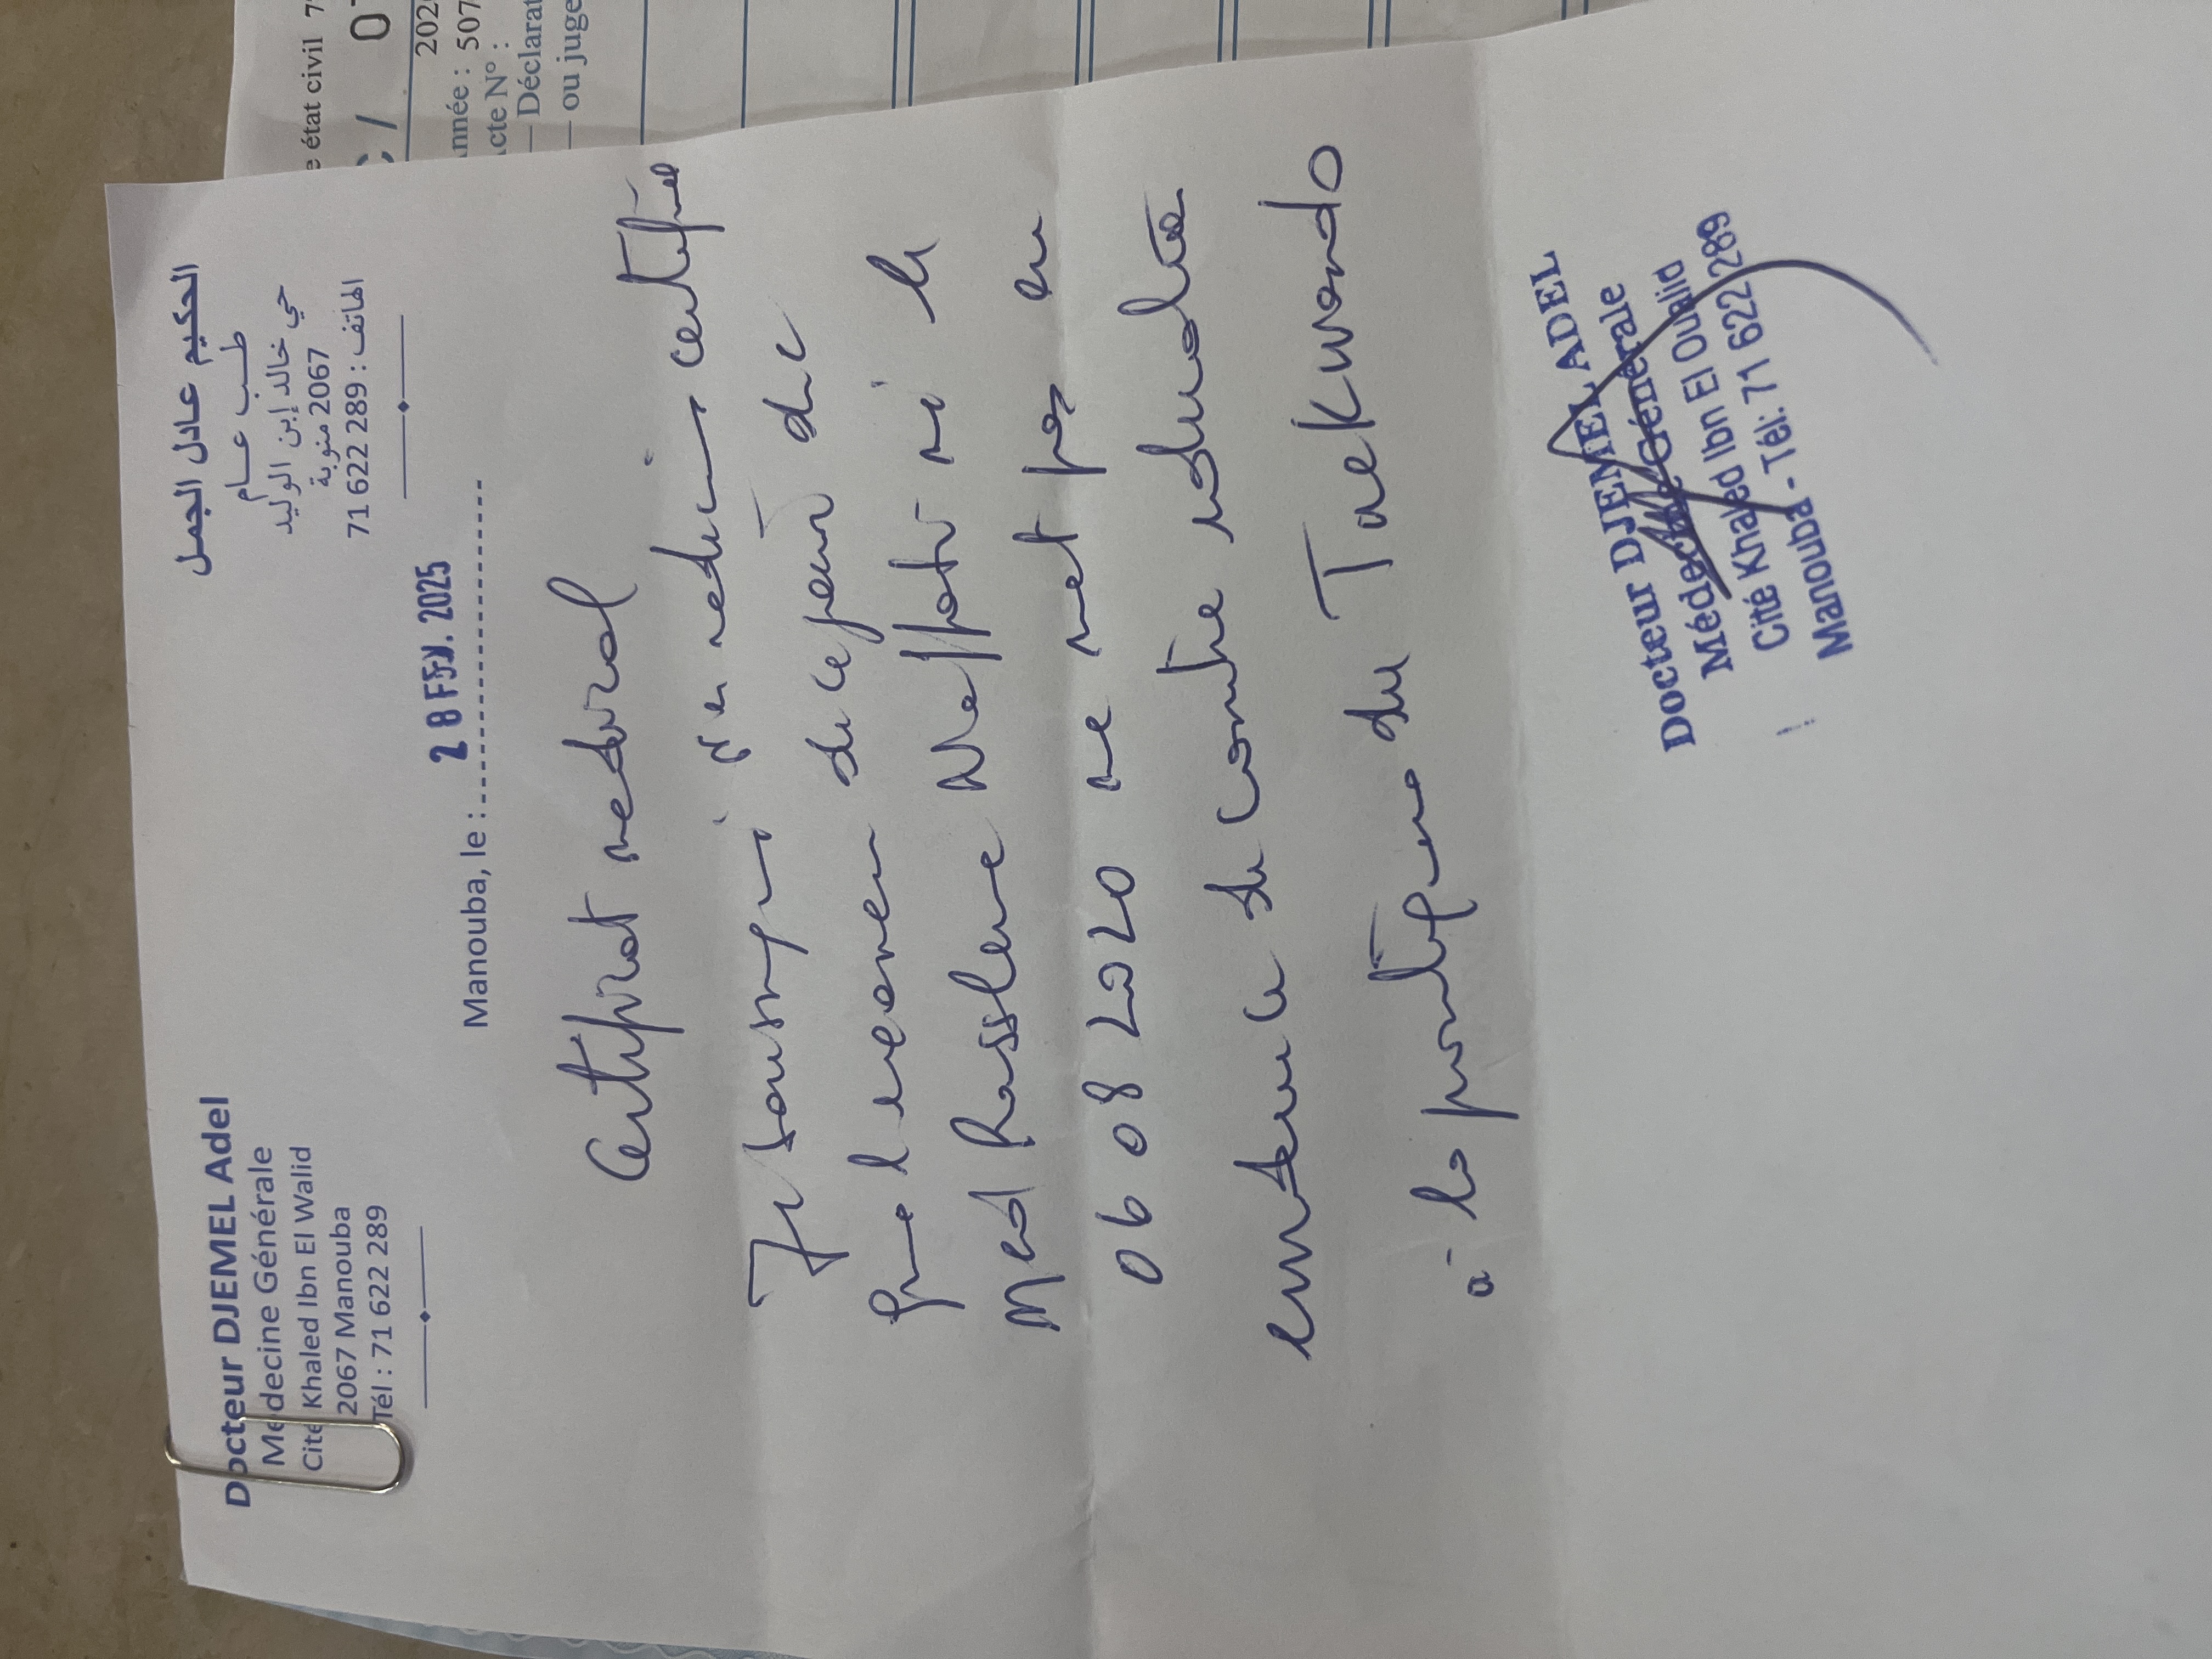 Docteur DJEMEL Adel
Medecine Générale
Cité Khaled Ibn El Walid
2067 Manouba
Tél : 71 622 289
الحكيم عادل الجمل
طب عام
حي خالد إبن الوليد
2067 منوبة
الهاتف : 289 622 71
Manouba, le : 28 FEV. 2025
Certificat medical
Je soussigné Dr en medecine certifie
que l'examen de ce jour de
Med Rasslene né le
06 08 2020 ne met pas en
evidence de contre indication
à la pratique du Taekwondo
Docteur DJEMEL ADEL
Médecine Générale
Cité Khaled Ibn El Oualid
Manouba - Tél: 71 622 289
e état civil
202
nnée : 507
cte N° :
— Déclarat
— ou juge